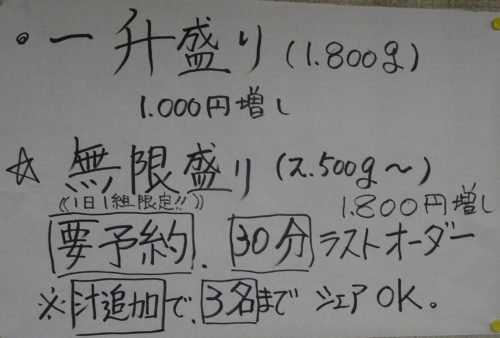 ・一升盛り(1.800g)
1.000円増し
☆無限盛り(2.500g〜)
((1日1組限定!!))
1.800円増し
要予約、30分ラストオーダー
※汁追加で、3名までシェアOK。